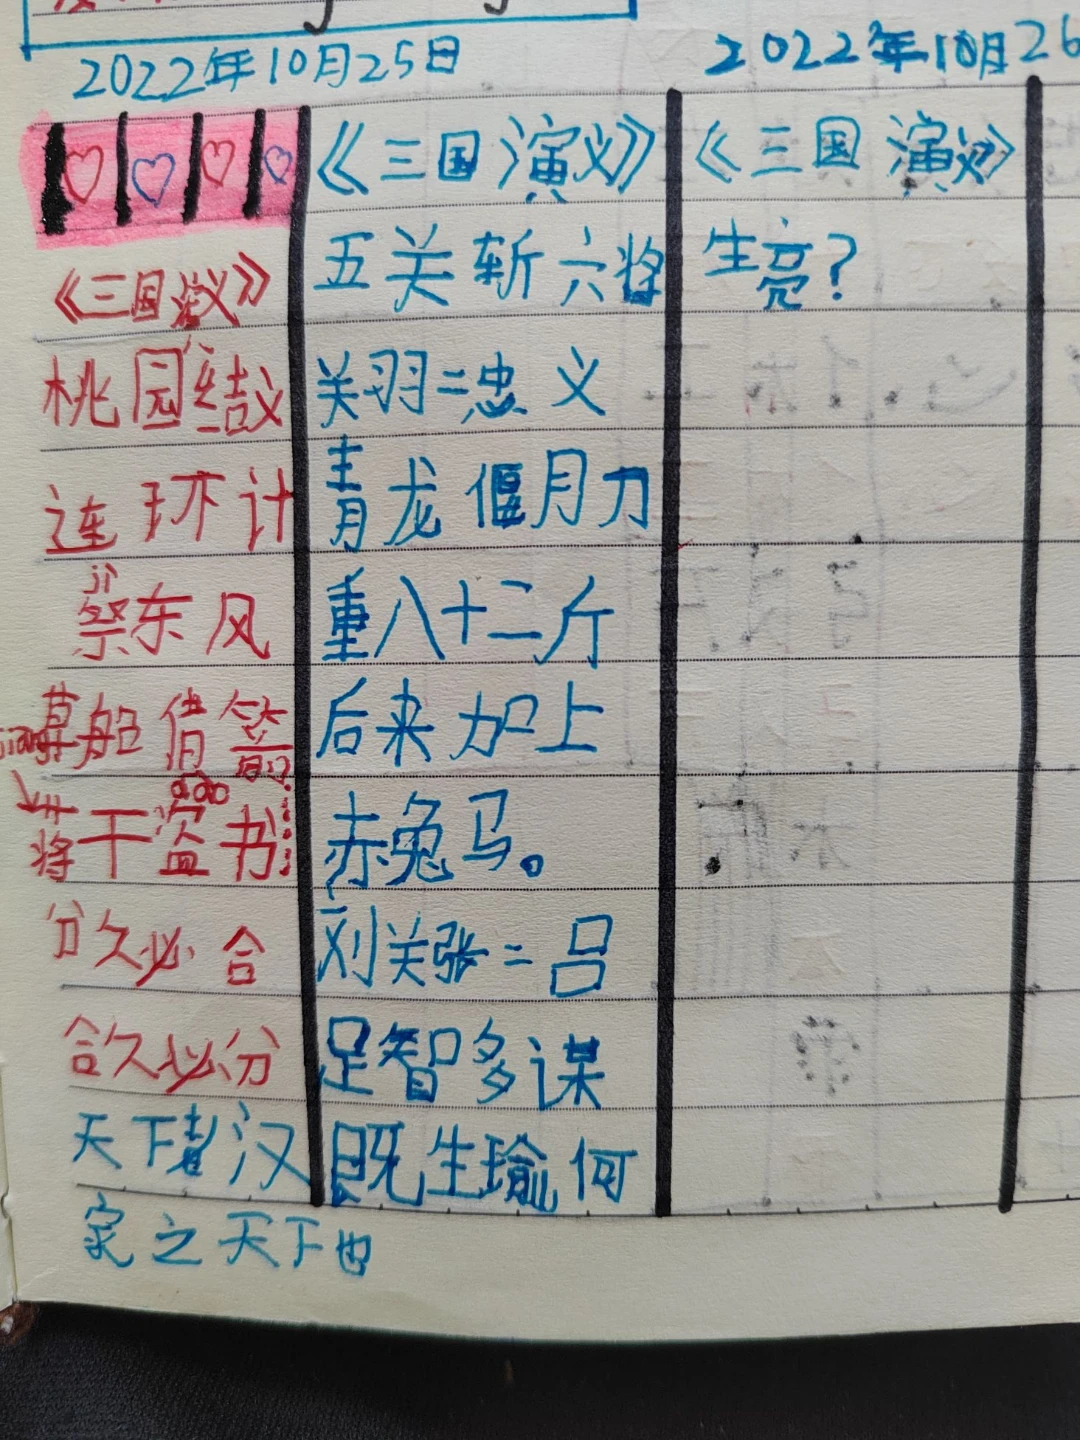 2022年10月25日
2022年10月26
《三国演义》
桃园结义
连环计
jì
祭东风
草船借箭
jiang
dao
蒋干盗书
分久必合
合久必分
天下者汉
家之天下也
《三国演义》
五关斩六将
关羽=忠义
青龙偃月刀
重八十二斤
后来加上
赤兔马。
刘关张=吕
足智多谋
既生瑜何
《三国演义》
生亮?